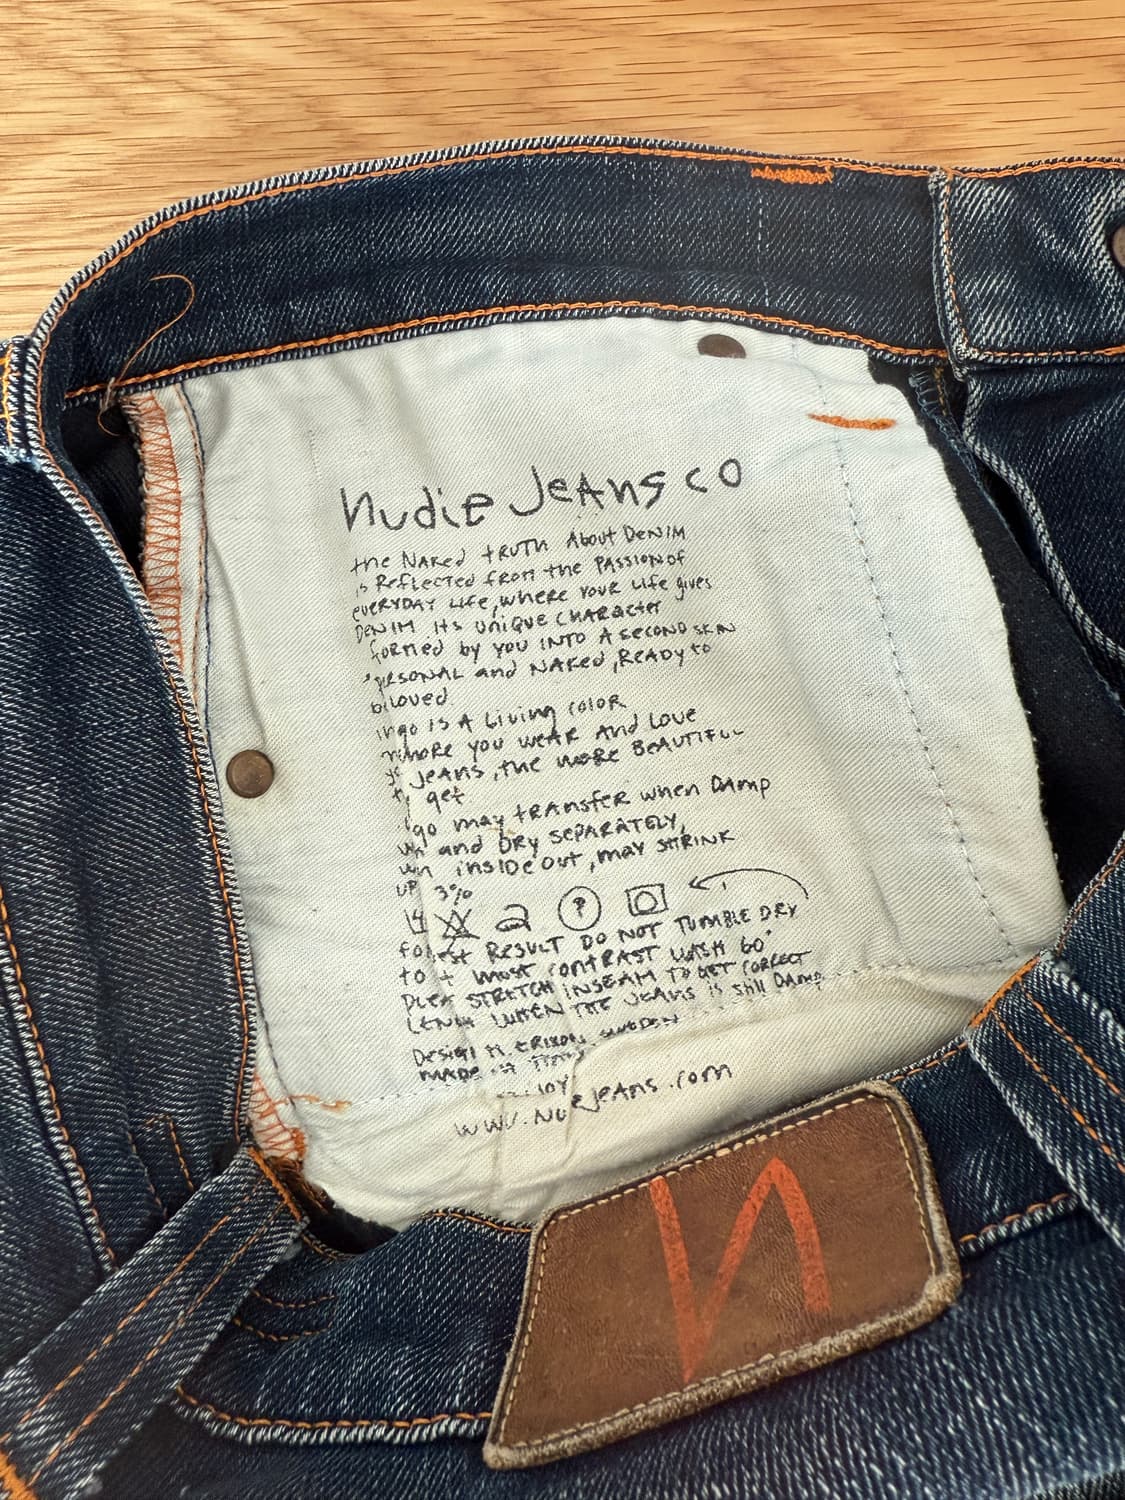 Nudie Jeans co
the NAKed tRUTH About DeNIM
is Reflected from the PASSION of
eveRYDAY Life, where YOUR Life gives
DENIM its unique CHARActer
formed by you INTO A second SKIN
peRSONAL and NAKed, ReADy to
loved.
is A Living coloR
moRE you weAR And Love
JeAns, the moRe BeAUTIFUL
get
may tRAnsfer when DAmp
and DRy sepARAteLy,
insIDe out, may SHRINK
UP 3%
?
foR Best ResuLt DO NOT TUMBLE DRY
to moSt contRAst WASH 60°
STRETCH INSEAM TO Get CORRect
WHEN THE JEANS is still DAmp
DesigN M. ERIXON, SWEDEN
MADE
www.Nudiejeans.com
N